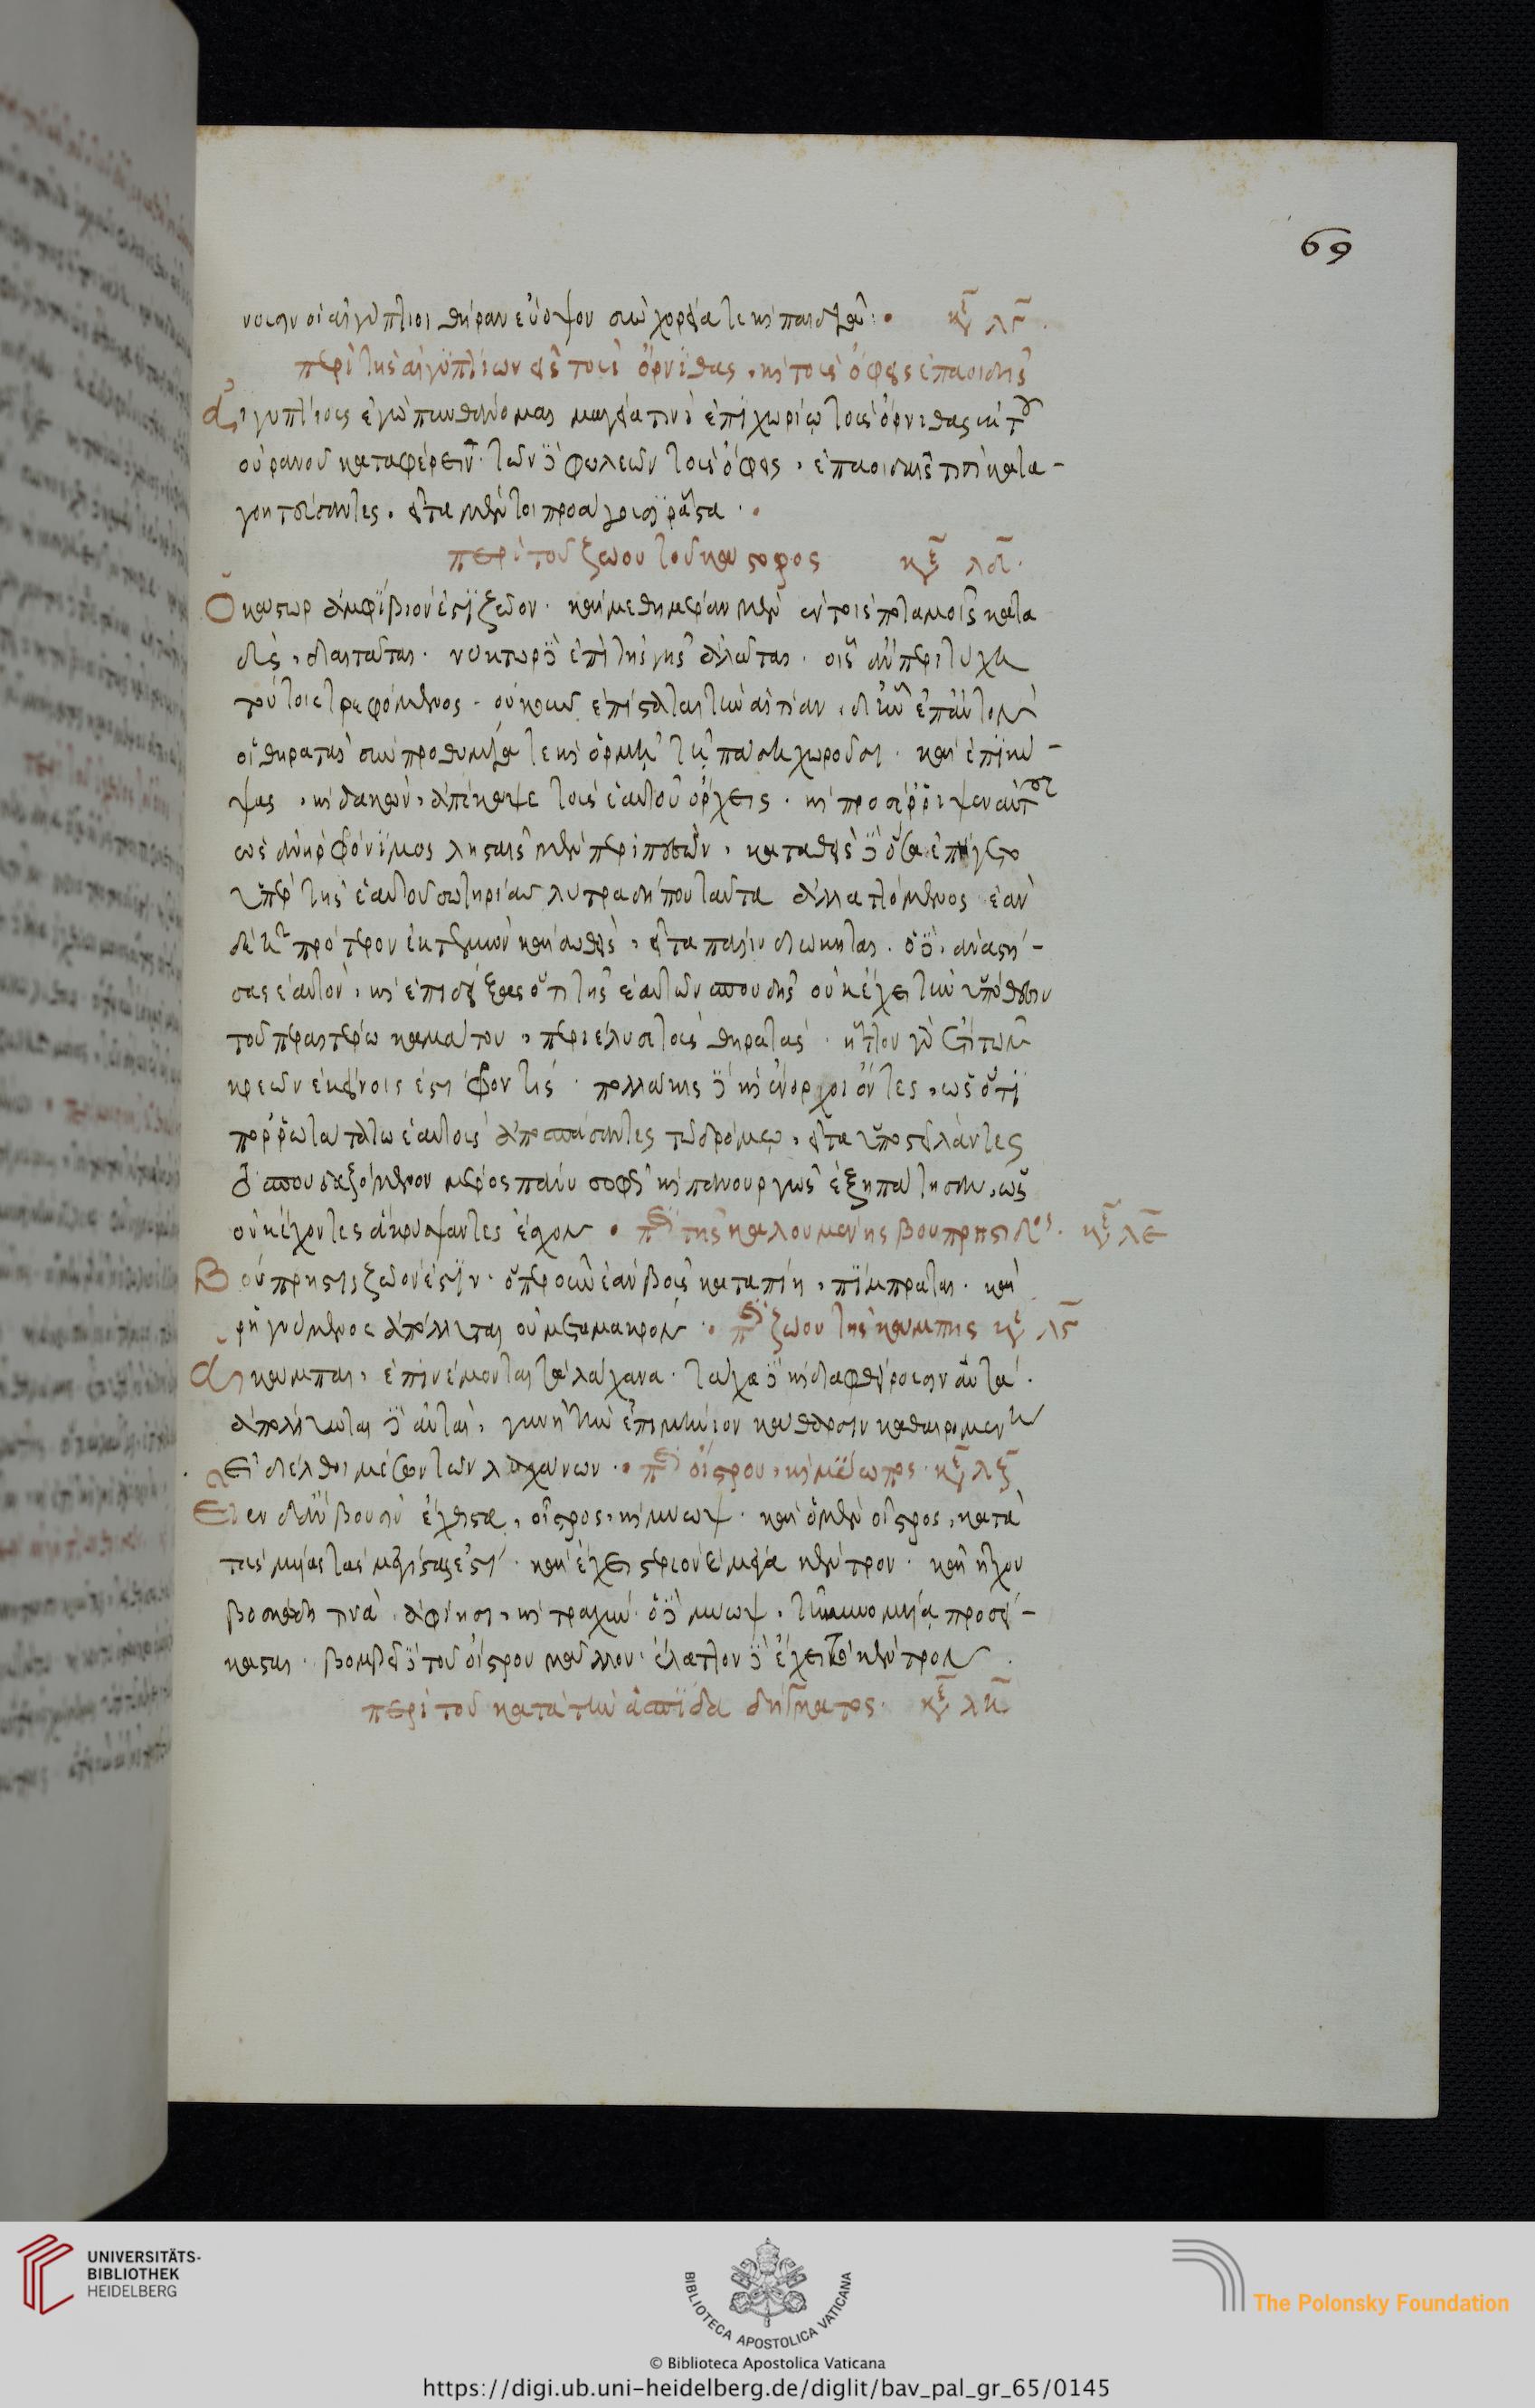 νουσιν οἱ αἰγύπτιοι θήραν εὔοψον σὺν χορδία τε καὶ παιδιᾷ· κεφ λγ
περὶ τῆς αἰγυπτίων εἰς τοὺς ὄρνιθας, καὶ τοὺς ὄφεις ἐπαοιδῆς
Αἰγυπτίους ἐγὼ πυνθάνομαι μαγεία τινὶ ἐπιχωρίῳ τοὺς ὄρνιθας ἐκ τοῦ
οὐρανοῦ καταφέρειν· τῶν δὲ φωλεῶν τοὺς ὄφεις, ἐπαοιδαῖς τισὶ κατα-
γοητεύσαντες, εἶτα μέντοι προάγουσι ῥᾶστα.
περὶ τοῦ ζώου τοῦ κάστορος κεφ λδ.
Ὁ κάστωρ ἀμφίβιόν ἐστι ζῶον· καὶ μεθημέραν μὲν ἐν τοῖς ποταμοῖς κατα
δὺς, διαιτᾶται· νύκτωρ δὲ ἐπὶ τῆς γῆς ἀλᾶται. οἷς ἂν περιτύχῃ
τούτοις τρεφόμενος. οὐκοῦν ἐπίσταται τὴν αἰτίαν, δι' ἣν ἐπ' αὐτὸν
οἱ θηραταὶ σὺν προθυμία τε καὶ ὁρμῇ τῇ πάσῃ χωροῦσι· καὶ ἐπικύ-
ψας, καὶ δακὼν, ἀπέκοψε τοὺς ἑαυτοῦ ὄρχεις. καὶ προσέρριψεν αὐτοῖς
ὡς ἀνὴρ φρόνιμος λησταῖς μὲν περιπεσών, καταθεὶς δὲ ὅσα ἐπήγετο
ὑπὲρ τῆς ἑαυτοῦ σωτηρίας λύτρα δήπου ταῦτα ἀλλαττόμενος· ἐὰν
δὲ ᾖ πρότερον ἐκτεμὼν καὶ σωθεὶς, εἶτα πάλιν διώκηται. ὁ δὲ, ἀναστή-
σας ἑαυτὸν, καὶ ἐπιδείξας ὅτι τῆς ἑαυτῶν σπουδῆς οὐκ ἔχει τὴν ὑπόθεσιν
τοῦ περαιτέρω καμάτου, περιέλυσε τοὺς θηρατάς. ἧττον γὰρ ἔτι τῶν
κρεῶν ἐκείνοις ἐστὶ φροντίς. πολλάκις δὲ καὶ ἔνορχοι ὄντες, ὡς ὅτι
πορρωτάτω ἑαυτοὺς ἀποσπάσαντες τῷ δρόμῳ, εἶτα ὑποστείλαντες
τὸ σπουδαζόμενον μέρος πάνυ σοφῶς καὶ πανούργως ἐξηπάτησαν, ὡς
οὐκ ἔχοντες ἃ κρύψαντες εἶχον. περὶ τῆς καλουμένης βουπρήστιδος. κεφ λε
Βούπρηστις ζῶον ἐστίν. ὅπερ οὖν ἐὰν βοῦς καταπίῃ, πίμπραται. καὶ
ῥήγνυμενος ἀπόλλυται οὐ μετὰ μακρόν. περὶ ζώου τῆς κάμπης κεφ λς
Αἱ κάμπαι, ἐπινέμονται τὰ λάχανα. τάχα δὲ καὶ διαφθείρουσιν αὐτά.
ἀπόλλυνται δὲ αὗται, γυνὴ τὴν ἐπιμήνιον κάθαρσιν καθαιρομένη
εἰ διέλθοι μέση τῶν λαχάνων. περὶ οἴστρου, καὶ μύωπος. κεφ λζ
Εἶεν δ' ἂν βουσὶν ἔχθιστα, οἶστρος, καὶ μύωψ. καὶ ὁ μὲν οἶστρος, κατὰ
τὰς μυίας τὰς μεγίστας ἐστί. καὶ ἔχει στερεὸν καὶ μέγα κέντρον. καὶ ἦχον
βομβώδη τινὰ ἀφίησι, καὶ τραχύν. ὁ δὲ μύωψ, τῇ κυνομυίᾳ προσεί-
κασται. βομβεῖ δὲ τοῦ οἴστρου μᾶλλον. ἔλαττον δὲ ἔχει τὸ κέντρον.
περὶ τοῦ κατὰ τὴν ἀσπίδα δήγματος. κεφ λη
69
UNIVERSITÄTS-
BIBLIOTHEK
HEIDELBERG
BIBLIOTECA APOSTOLICA VATICANA
The Polonsky Foundation
© Biblioteca Apostolica Vaticana
https://digi.ub.uni-heidelberg.de/diglit/bav_pal_gr_65/0145